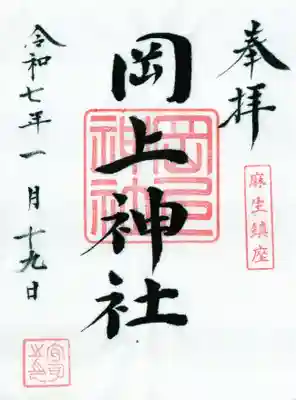 奉拝
麻生鎮座
岡上神社
令和七年一月十九日